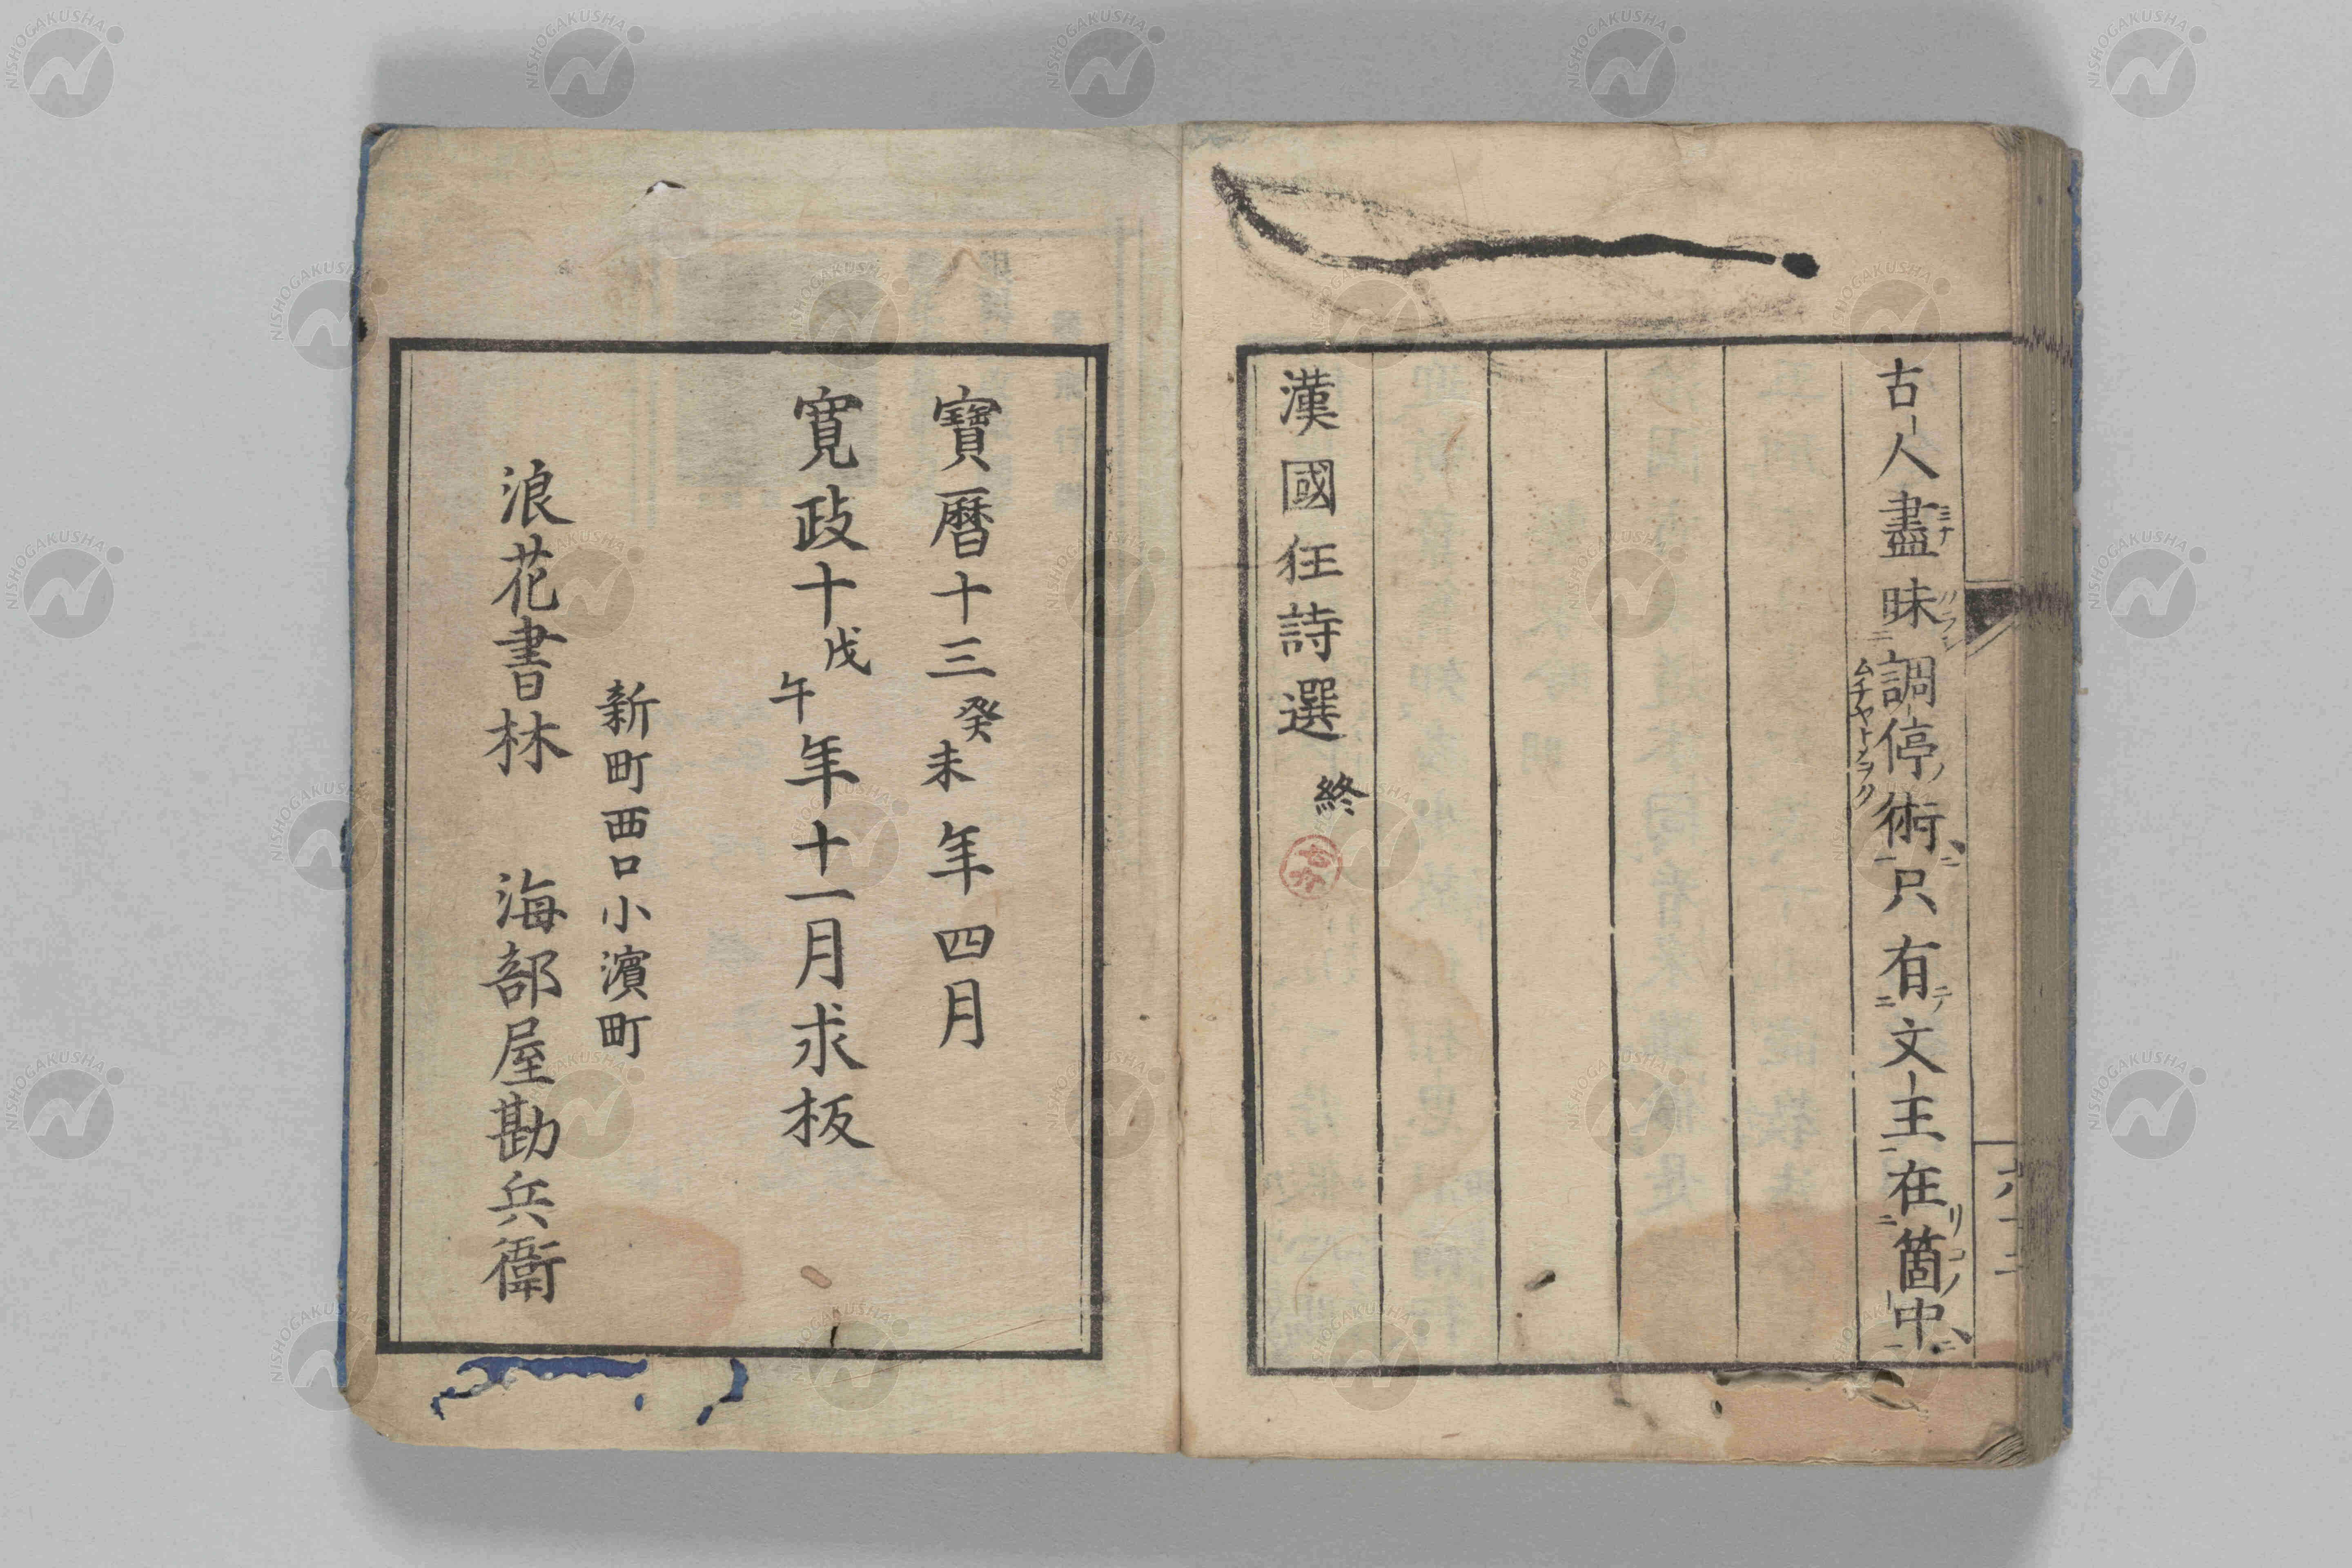 古人盡昧調停術只有文主在箇中
六十二
漢國狂詩選 終
寶曆十三癸未年四月
寛政十戊午年十一月求板
新町西口小濱町
浪花書林 海部屋勘兵衛
NISHOGAKUSHA